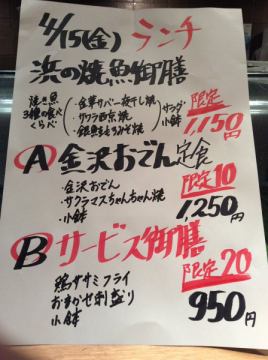 4/15(金) ランチ
浜の焼魚御膳
焼き魚
3種の食べ
くらべ
・金華サバ一夜干し焼
・サクラ西京焼
・銀鱈もろみそ焼
サラダ
小鉢
限定
1,150円
A 金沢おでん定食
・金沢おでん
・サクラマスちゃんちゃん焼
・小鉢
限定10
1,250円
B サービス御膳
鶏ササミフライ
おまかせ刺盛り
小鉢
限定20
950円